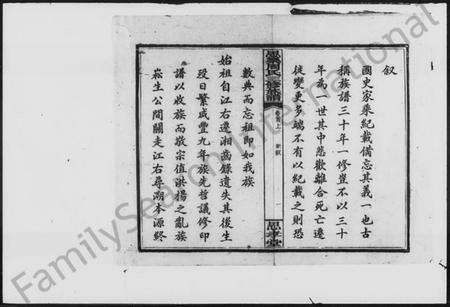 叙
國史家乘紀載備忘其義一也古
稱族譜三十年一修豈不以三十
年為一世其中悲歡離合死亡遷
徙變更多端不有以紀載之則恐
周氏族譜
思孝堂
數典而忘祖卽如我族
始祖自江右遷湘齒錄遺失其後生
歿日繁咸豐九年族先哲議修印
譜以收族而敬宗值洪楊之亂族
崧生公間關走江右尋溯本源終
FamilySearch International